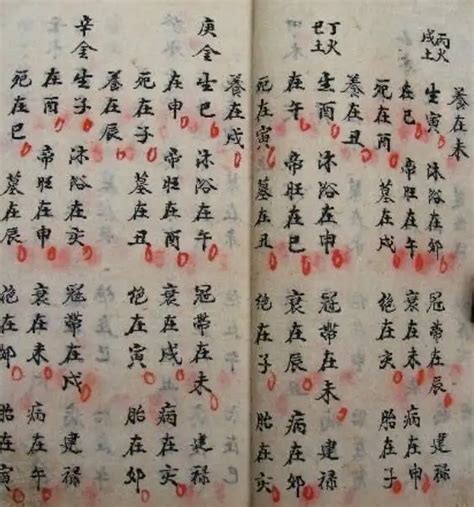 養在未
丙火
戊土
生寅 沐浴在卯 冠帶在辰 建禄
在巳 帝旺在午 衰在未 病在申
死在酉 墓在戌 絶在亥 胎在子
養在丑
丁火
巳土
生酉 沐浴在申 冠帶在未 建禄
在午 帝旺在巳 衰在辰 病在卯
死在寅 墓在丑 絶在子 胎在亥
養在戌
庚金生巳 沐浴在午 冠帶在未 建禄
在申 帝旺在酉 衰在戌 病在亥
死在子 墓在丑 絶在寅 胎在卯
養在辰
辛金生子 沐浴在亥 冠帶在戌 建禄
在酉 帝旺在申 衰在未 病在午
死在巳 墓在辰 絶在卯 胎在寅